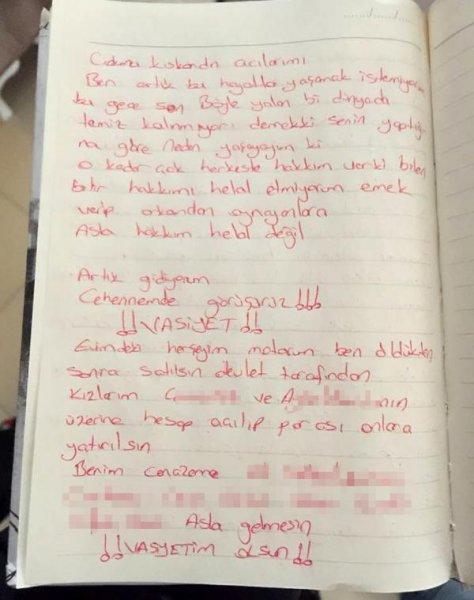 kıskandın acılarımı
Ben artık bu hayatta yaşamak istemiyorum
bu gece son Böyle yalan bi dünyada
temiz kalınmıyor demekki senin yaptığı
na göre Neden yaşayayım ki
o kadar çok herkeste hakkım var ki bilen
bilir hakkımı helal etmiyorum emek
verip arkandan oynayanlara
Asla hakkım helal değil
Artık gidiyorum
Cehennemde görüşürüz !!!
!!VASİYET!!
Evimdeki herşeyim motorum ben öldükten
sonra satılsın devlet tarafından
Kızlarım ve nın
üzerine hesap açılıp parası onlara
yatırılsın
Benim cenazeme
Asla gelmesin
!!VASYETİM OLSUN!!